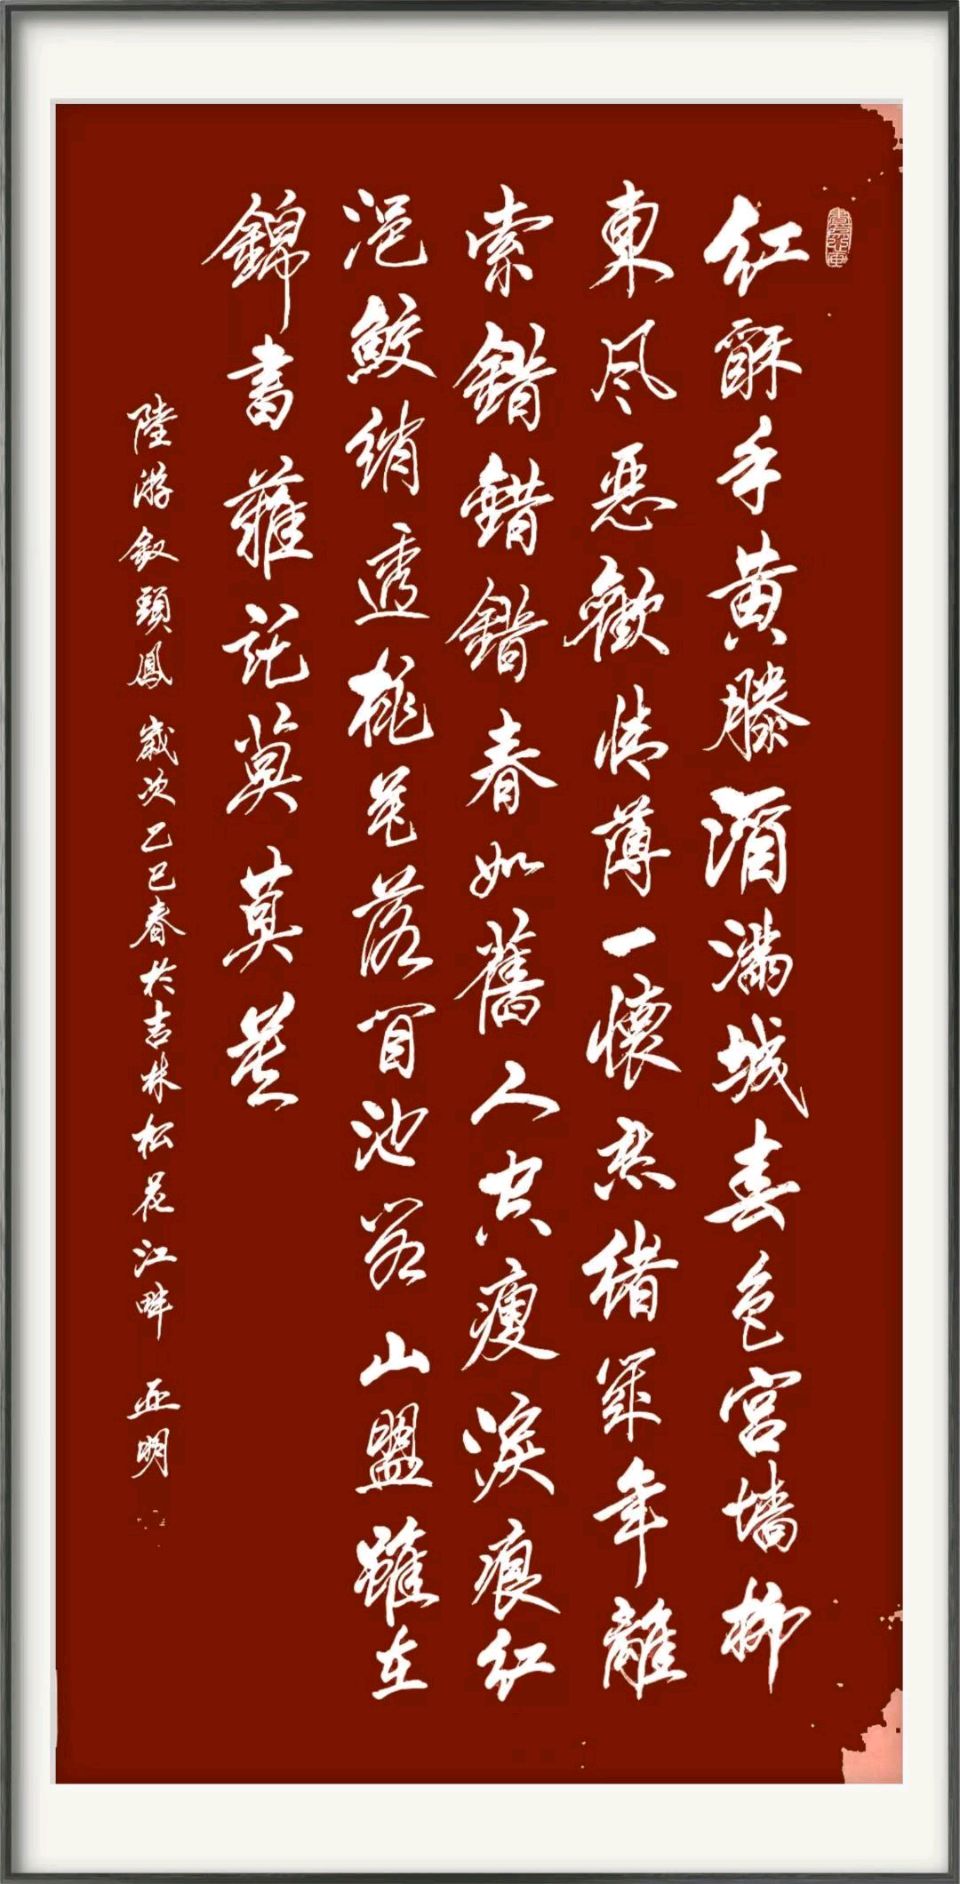 红酥手黄滕酒满城春色宫墙柳
東风恶歡情薄一懷愁绪几年離
索錯錯錯春如舊人空瘦淚痕红
浥鮫绡透桃花落闲池阁山盟雖在
錦書難託莫莫莫
陸游釵頭鳳 歲次乙巳春於吉林松花江畔 亚明